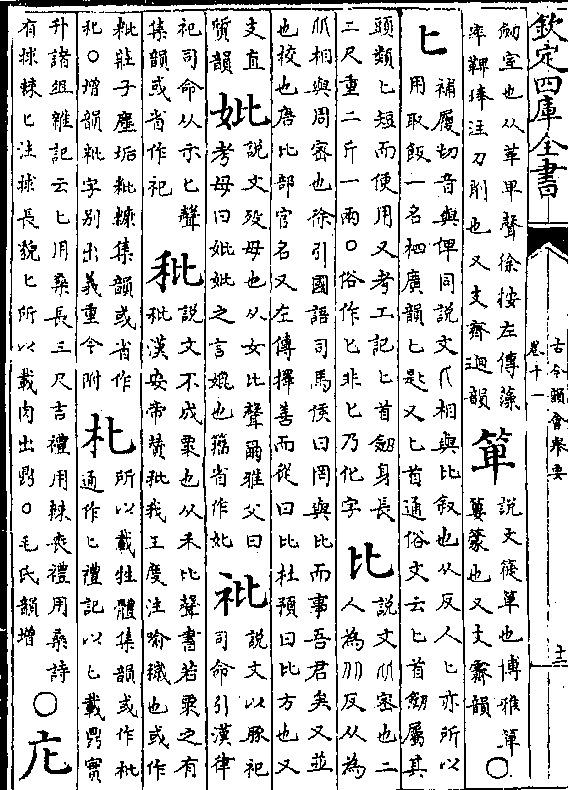 欽定四庫全書
古今韻會舉要
卷十一
室也从革卑聲徐按左傳藻
率鞞琫注刀削也又支齊迥韻
箄
說文簁箄也博雅箄
簍也又支齊韻
○
匕
補履切音與俾同說文从相與比敘也从反人匕亦所以
用取飯一名柶廣韻匕匙又匕首通俗文云匕首劒屬其
頭類匕短而便用又考工記匕首劒身長
二尺重二斤一兩○俗作匕非匕乃化字
比
說文密也二
人為从反从為
爪相與周密也徐引國語司馬侯曰罔與比而事吾君矣又並
也校也唐比部官名又左傳擇善而從曰比杜預曰比方也又
支直
質韻
妣
說文歿母也从女比聲爾雅父曰
考母曰妣妣之言媲也籀省作妣
祉
說文以豚祀
司命引漢律
祀司命从示匕聲
集韻或省作祀
秕
說文不成粟也从禾比聲書若粟之有
秕漢安帝贊秕我王度注喻穢也或作
粃莊子塵垢粃糠集韻或省作
秕○增韻粃字別出義重今附
朼
所以載牲體集韻或作枇
通作匕禮記以匕載鼎實
升諸俎雜記云匕用桑長三尺吉禮用棘喪禮用桑詩
有捄棘匕注捄長貌匕所以載肉出鼎○毛氏韻增
○庀